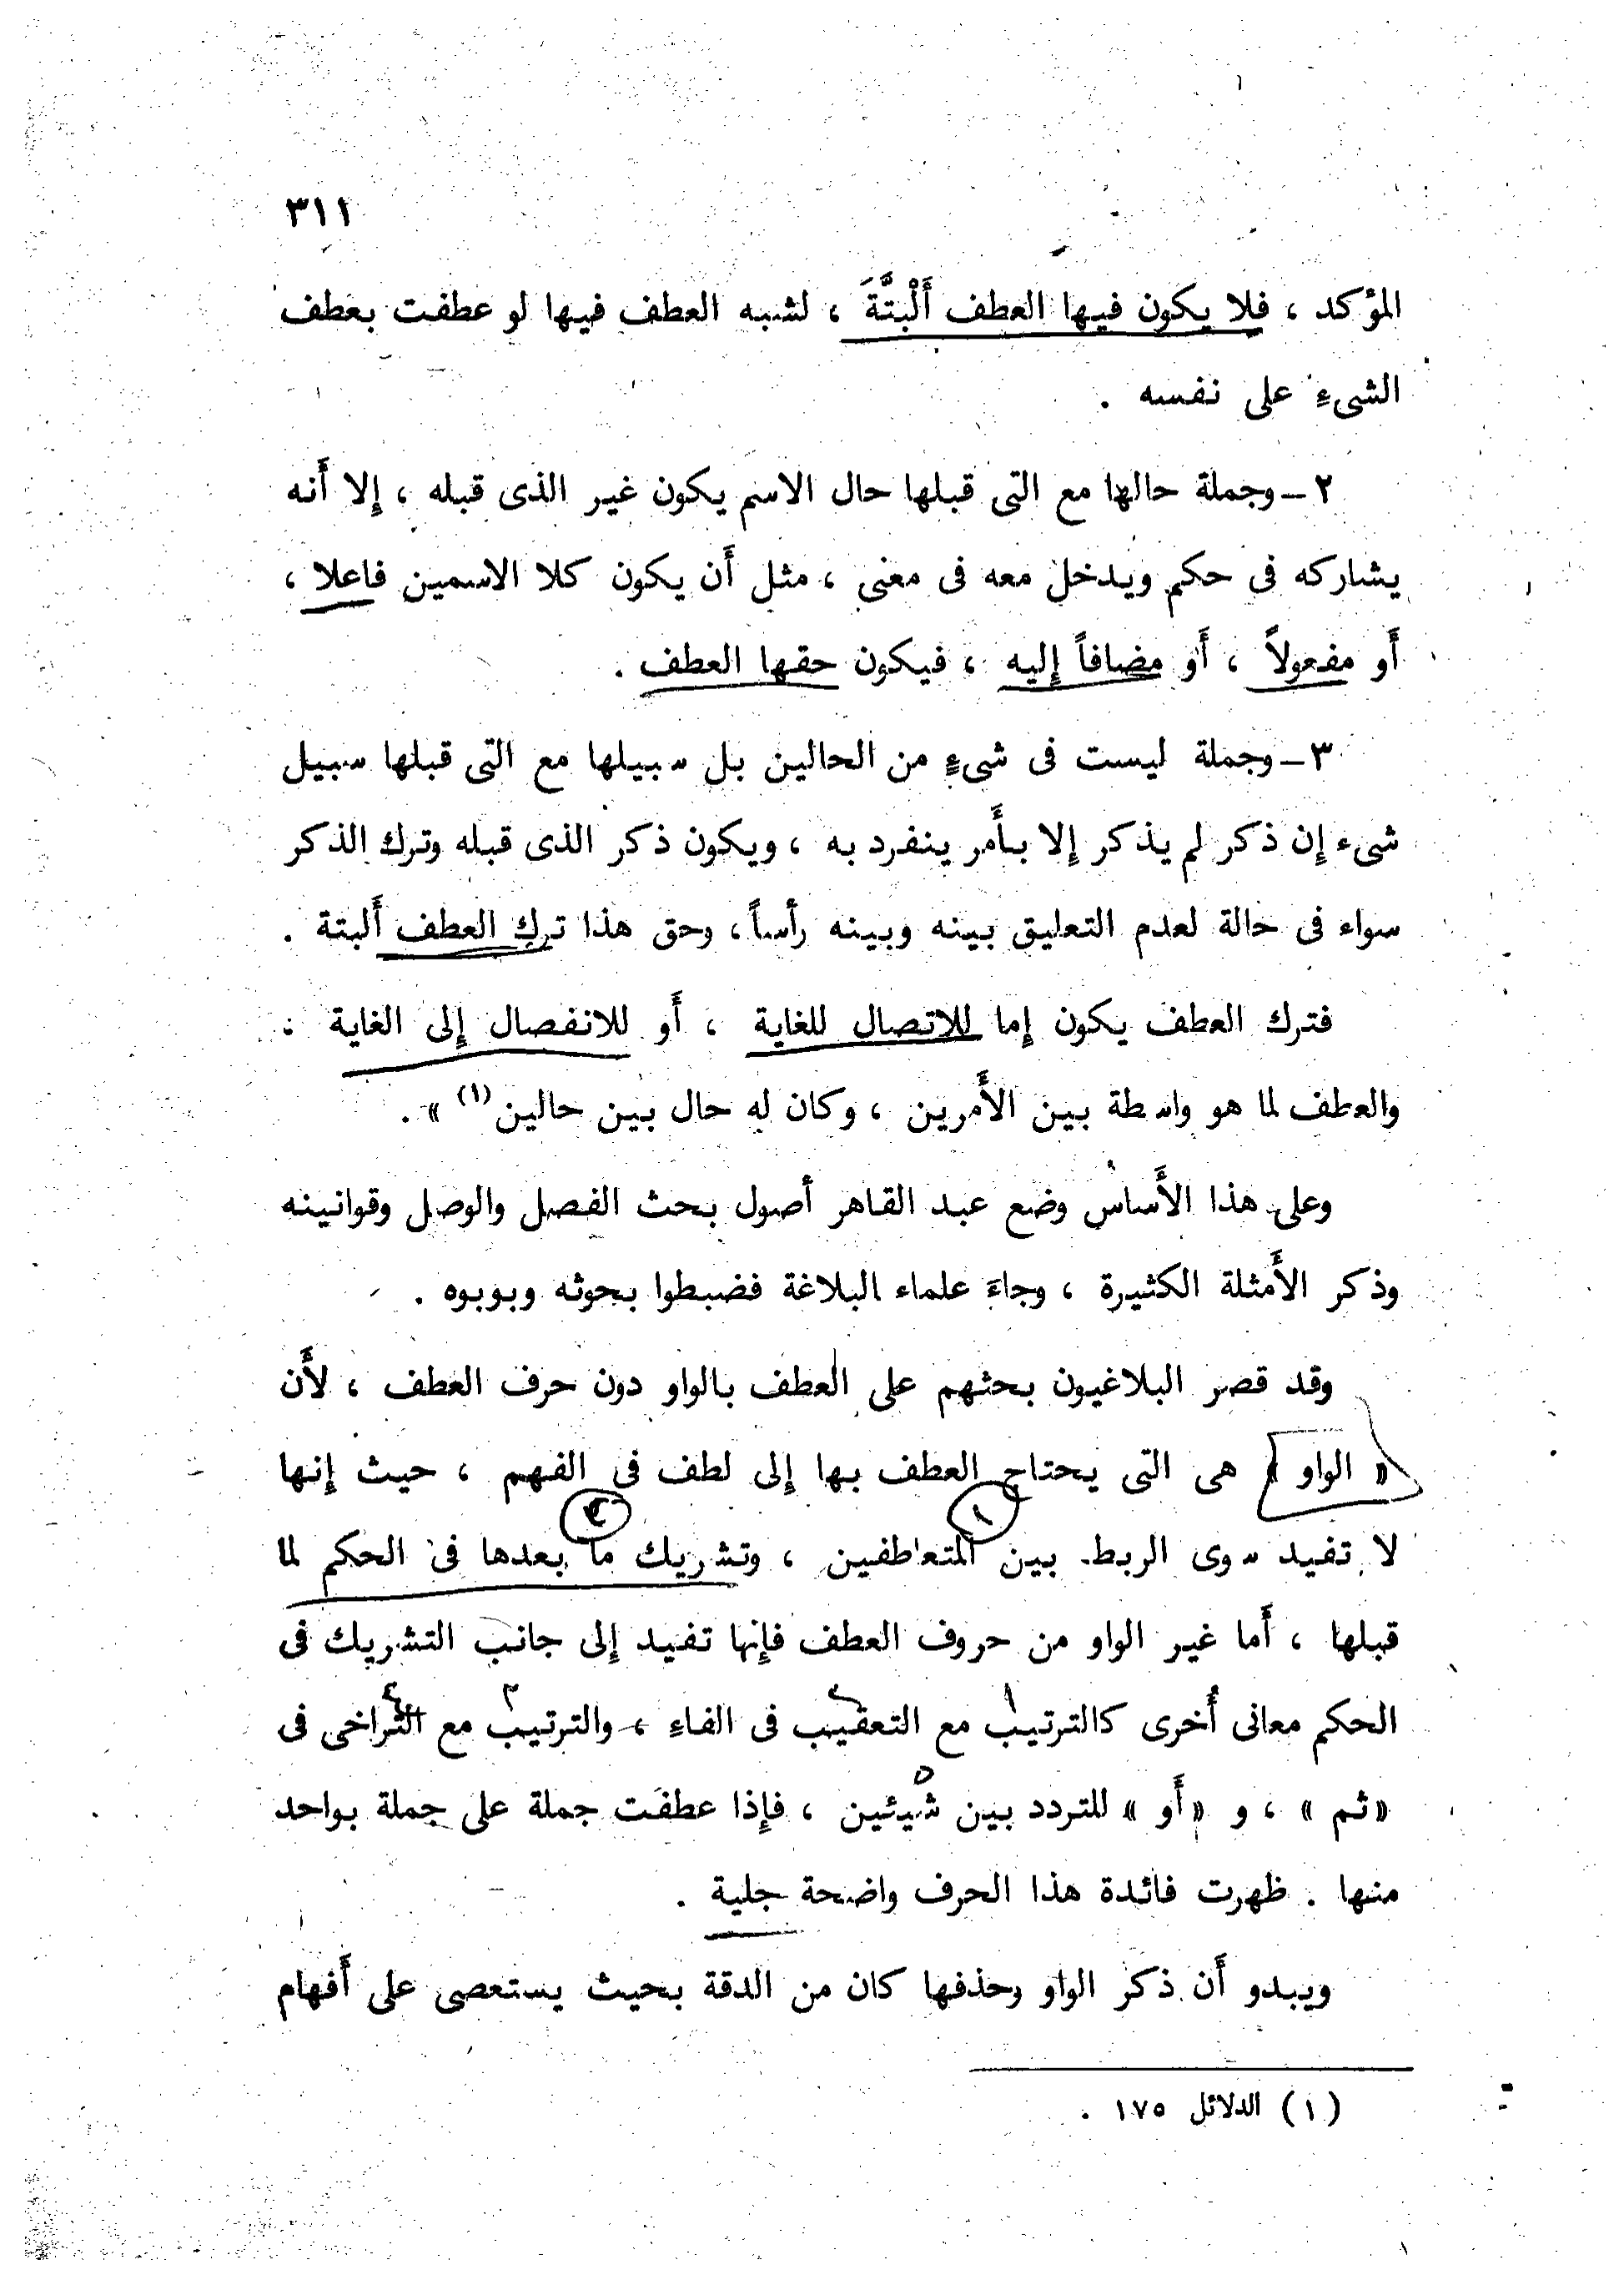 ٣١١
المؤكد ، فلا يكون فيها العطف أَلْبتَّةَ ، لشبه العطف فيها لو عطفت بعطف
الشىءِ على نفسه .
٢ - وجملة حالها مع التى قبلها حال الاسم يكون غير الذى قبله ، إلا أَنه
يشاركه فى حكم ويدخل معه فى معنى ، مثل أَن يكون كلا الاسمين فاعلا ،
أَو مفعولاً ، أَو مضافاً إليه ، فيكون حقها العطف .
٣ - وجملة ليست فى شىءٍ من الحالين بل سبيلها مع التى قبلها سبيل
شىء إن ذكر لم يذكر إلا بأَمر ينفرد به ، ويكون ذكر الذى قبله وترك الذكر
سواء فى حالة لعدم التعليق بينه وبينه رأساً ، وحق هذا ترك العطف أَلبتة .
فترك العطف يكون إما للاتصال للغاية ، أَو للانفصال إلى الغاية :
والعطف لما هو واسطة بين الأَمرين ، وكان له حال بين حالين (١) » .
وعلى هذا الأَساس وضع عبد القاهر أصول بحث الفصل والوصل وقوانينه
وذكر الأَمثلة الكثيرة ، وجاءَ علماء البلاغة فضبطوا بحوثه وبوبوه .
وقد قصر البلاغيون بحثهم على العطف بالواو دون حرف العطف ، لأَن
« الواو » هى التى يحتاج العطف بها إلى لطف فى الفهم ، حيث إنها
١ ٢
لا تفيد سوى الربط بين المتعاطفين ، وتشريك ما بعدها فى الحكم لما
قبلها ، أَما غير الواو من حروف العطف فإنها تفيد إلى جانب التشريك فى
١ ٢ ٣ ٤
الحكم معانى أُخرى كالترتيب مع التعقيب فى الفاءِ ، والترتيب مع التراخى فى
٥
«ثم » ، و «أَو » للتردد بين شيئين ، فإذا عطفت جملة على جملة بواحد
منها . ظهرت فائدة هذا الحرف واضحة جلية .
ويبدو أَن ذكر الواو وحذفها كان من الدقة بحيث يستعصى على أَفهام
(١) الدلائل ١٧٥ .